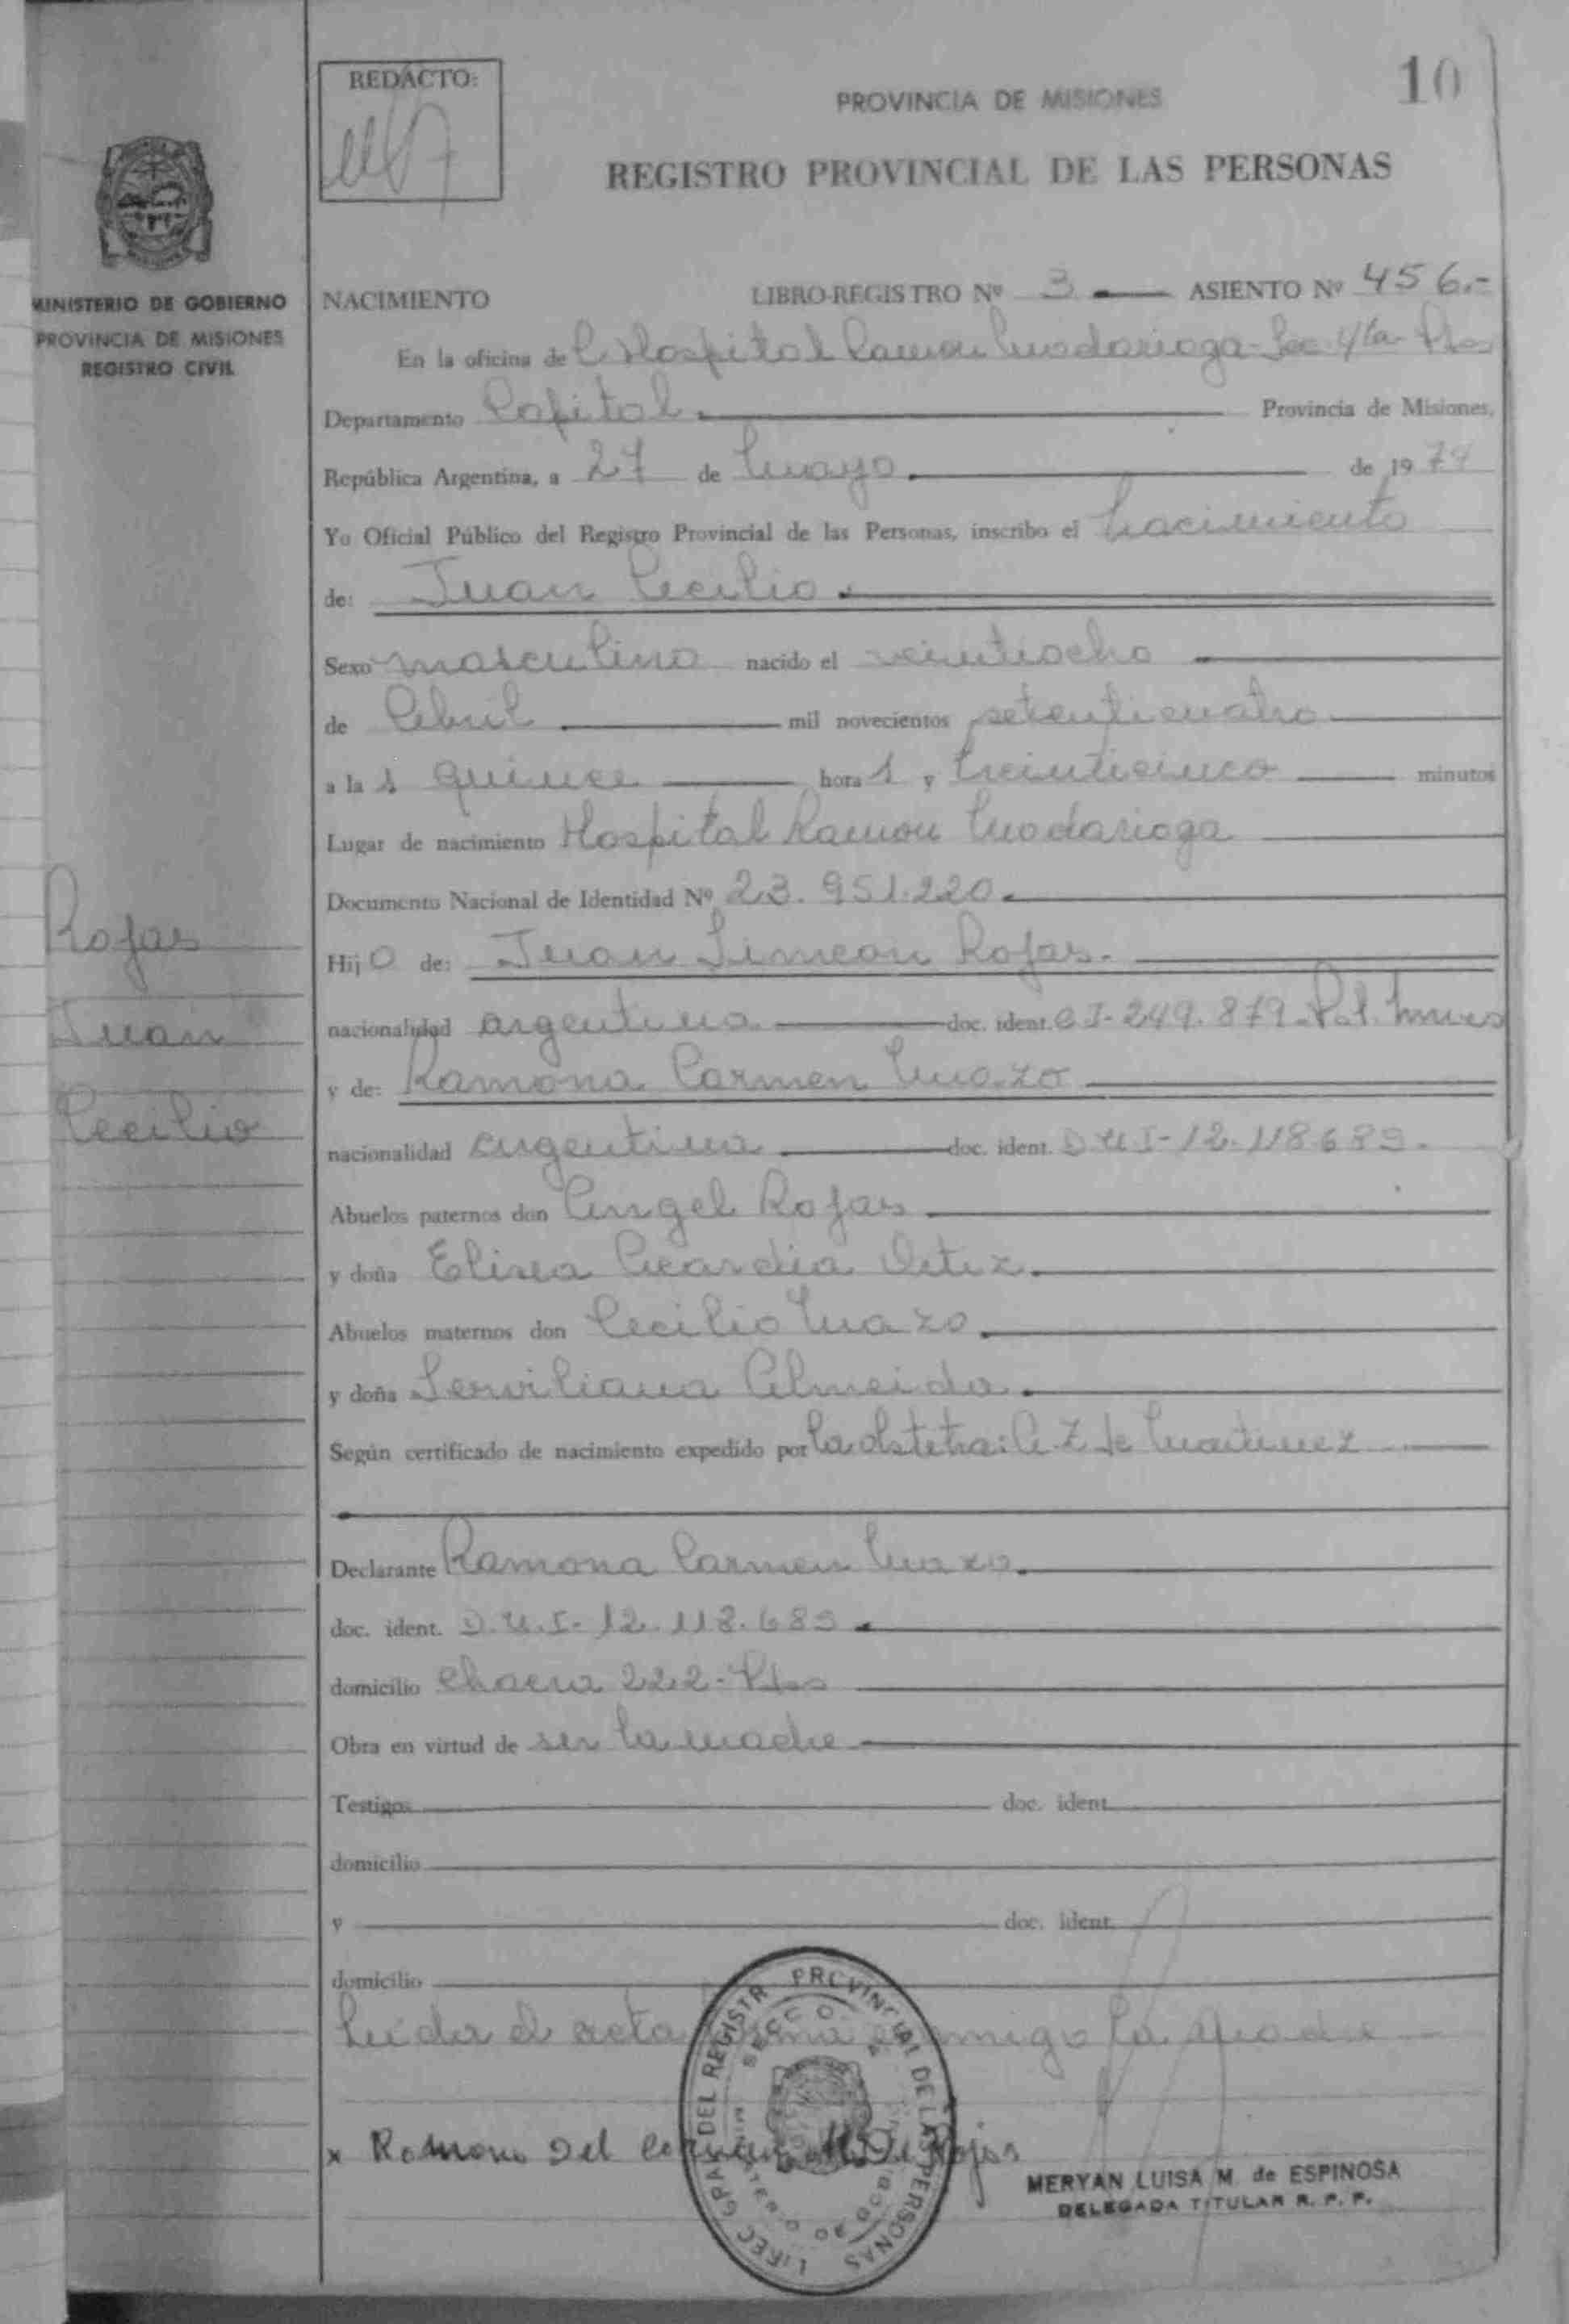 REDACTO:
10
PROVINCIA DE MISIONES
REGISTRO PROVINCIAL DE LAS PERSONAS
MINISTERIO DE GOBIERNO
PROVINCIA DE MISIONES
REGISTRO CIVIL
NACIMIENTO LIBRO-REGISTRO Nº 3 ASIENTO Nº 456.-
En la oficina de Hospital Ramon Madariaga - Sec. 4ta - Pdas
Departamento Capital. Provincia de Misiones,
República Argentina, a 27 de Mayo. de 1974
Yo Oficial Público del Registro Provincial de las Personas, inscribo el Nacimiento
de: Juan Cecilio.
Sexo masculino nacido el veintiocho
de Abril mil novecientos setenticuatro
a las quince horas y treinticinco minutos
Lugar de nacimiento Hospital Ramon Madariaga
Documento Nacional de Identidad Nº 23.951.220.
Rojas
Juan
Cecilio
Hijo de: Juan Simeon Rojas.
nacionalidad argentina doc. ident. CI-249.879-Pol. Mnes
y de: Ramona Carmen Mazo
nacionalidad argentina doc. ident. D.U.I-12.118.689.
Abuelos paternos don Angel Rojas
y doña Elisea Ortiz.
Abuelos maternos don Cecilio Mazo.
y doña Serviliana Almeida.
Según certificado de nacimiento expedido por la obstetra: A. Z de Martinez
Declarante Ramona Carmen Mazo.
doc. ident. D.U.I-12.118.689.
domicilio Chacra 222-Pdas
Obra en virtud de ser la madre
Testigos doc. ident.
domicilio
y doc. ident.
domicilio
Leída el acta firma conmigo la madre
x Ramona Del Carmen M De Rojas
MERYAN LUISA M. de ESPINOSA
DELEGADA TITULAR R. P. P.